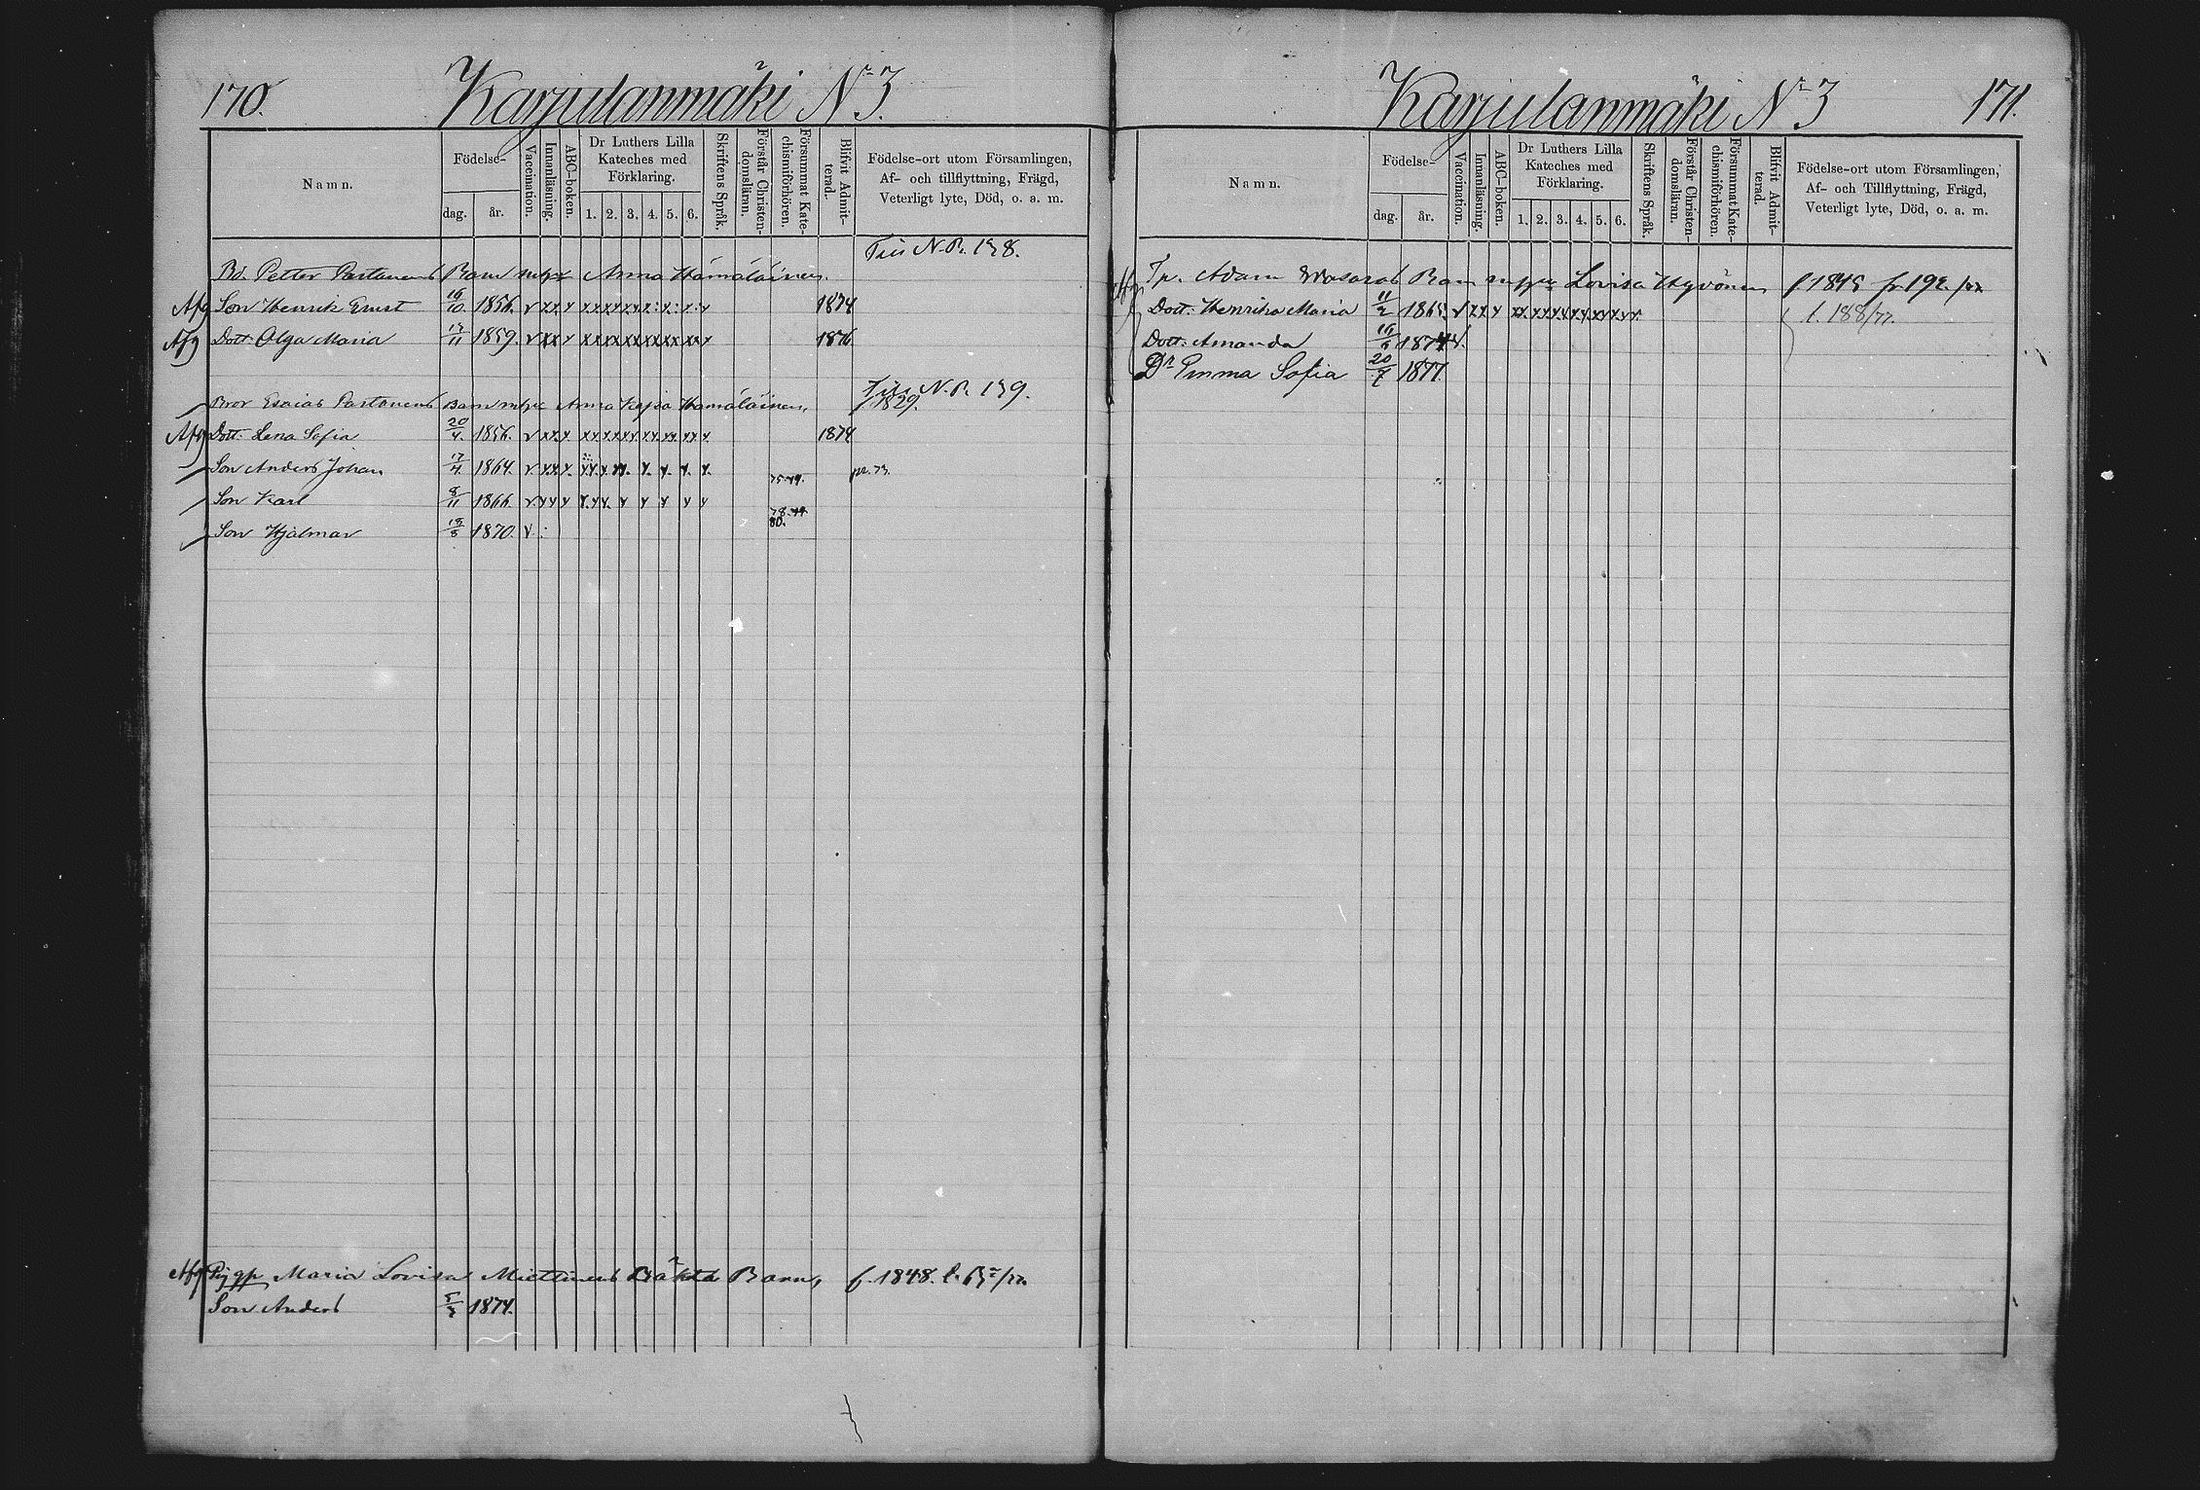 170. Karjulanmäki No 3.
Namn. Födelse- dag. år. Vaccination. Innanläsning. ABC-boken. Dr Luthers Lilla Kateches med Förklaring. 1. 2. 3. 4. 5. 6. Skriftens Språk. Förstår Christendomsläran. Försummat Katechismiförhören. Blifvit Admitterad. Födelse-ort utom Församlingen, Af- och tillflyttning, Frägd, Veterligt lyte, Död, o. a. m.
N. B. 138.
Bd. Petter Partanens Barn Anna Hämäläinen.
Afg Son Henrik Ernst 16/10 1856. 1874
Afg Dott. Olga Maria 1859. 1876
N. B. 139.
Bror Esaias Partanens Barn Anna Kajsa Hämäläinen, 1829.
Afg Dott. Lena Sofia 20/4. 1856. 1874
Son Anders Johan 1864. 75.
Son Karl 8/11 1866. 78. 79. 80.
Son Hjalmar 1870.
Afg Maria Lovisa Miettinens Oäkta Barn, f. 1848.
Son Anders 1874.
Karjulanmäki No 3 171.
Namn. Födelse- dag. år. Vaccination. Innanläsning. ABC-boken. Dr Luthers Lilla Kateches med Förklaring. 1. 2. 3. 4. 5. 6. Skriftens Språk. Förstår Christendomsläran. Försummat Katechismiförhören. Blifvit Admitterad. Födelse-ort utom Församlingen, Af- och Tillflyttning, Frägd, Veterligt lyte, Död, o. a. m.
Adam Barn Lovisa Hyvönen f. 1845
Dott. Henrika Maria 11/2 1865. l. 188/77.
Dott. Amanda 1874
Dr Emma Sofia 20/7 1877.